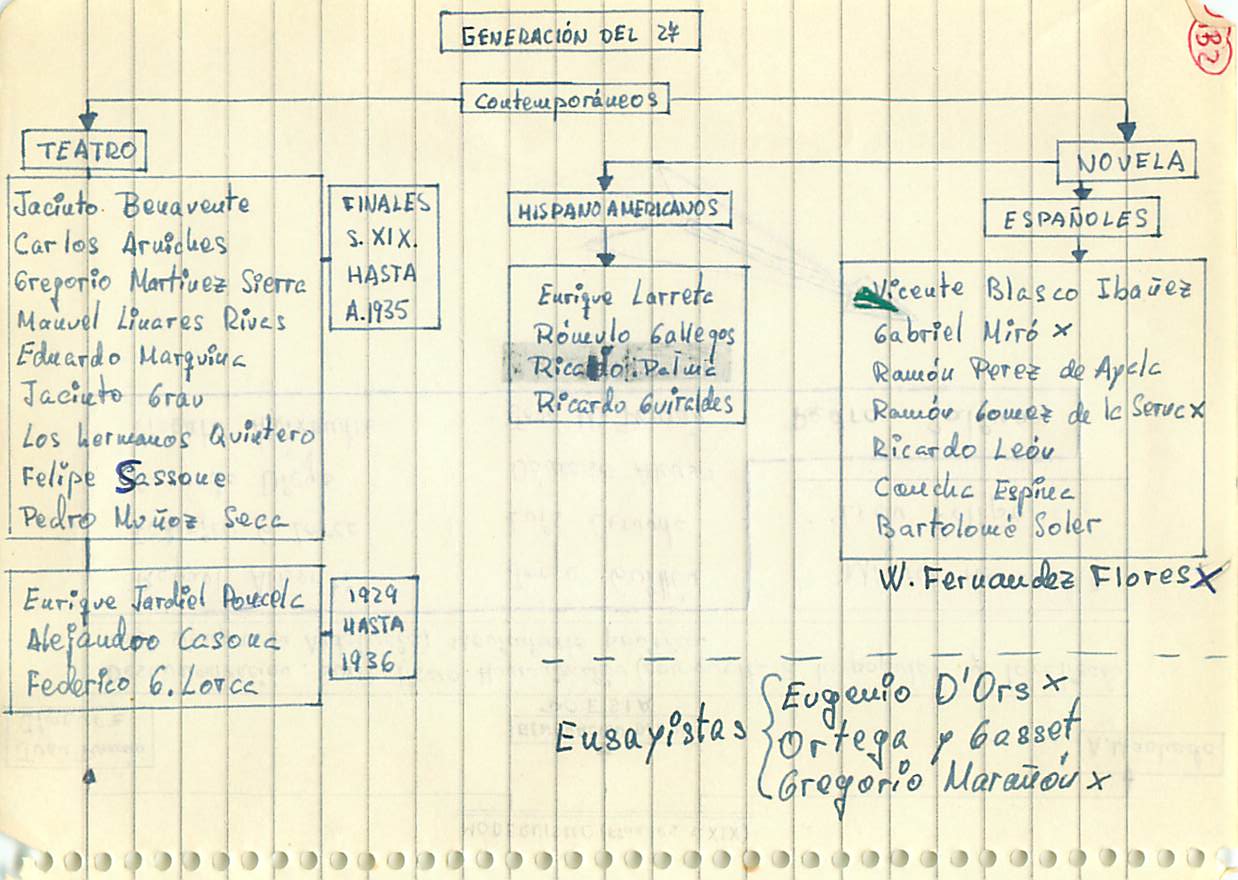 GENERACIÓN DEL 27
132
Contemporáneos
TEATRO
Jacinto Benavente
Carlos Arniches
Gregorio Martinez Sierra
Manuel Linares Rivas
Eduardo Marquina
Jacinto Grau
Los hermanos Quintero
Felipe Sassone
Pedro Muñoz Seca
FINALES
S. XIX.
HASTA
A.1935
Enrique Jardiel Poncela
Alejandro Casona
Federico G. Lorca
1929
HASTA
1936
NOVELA
HISPANOAMERICANOS
Enrique Larreta
Rómulo Gallegos
Ricardo Palma
Ricardo Guiraldes
ESPAÑOLES
Vicente Blasco Ibañez
Gabriel Miró x
Ramón Perez de Ayala
Ramón Gomez de la Serna x
Ricardo León
Concha Espina
Bartolomé Soler
W. Fernandez Flores X
Ensayistas
Eugenio D'Ors x
Ortega y Gasset
Gregorio Marañón x